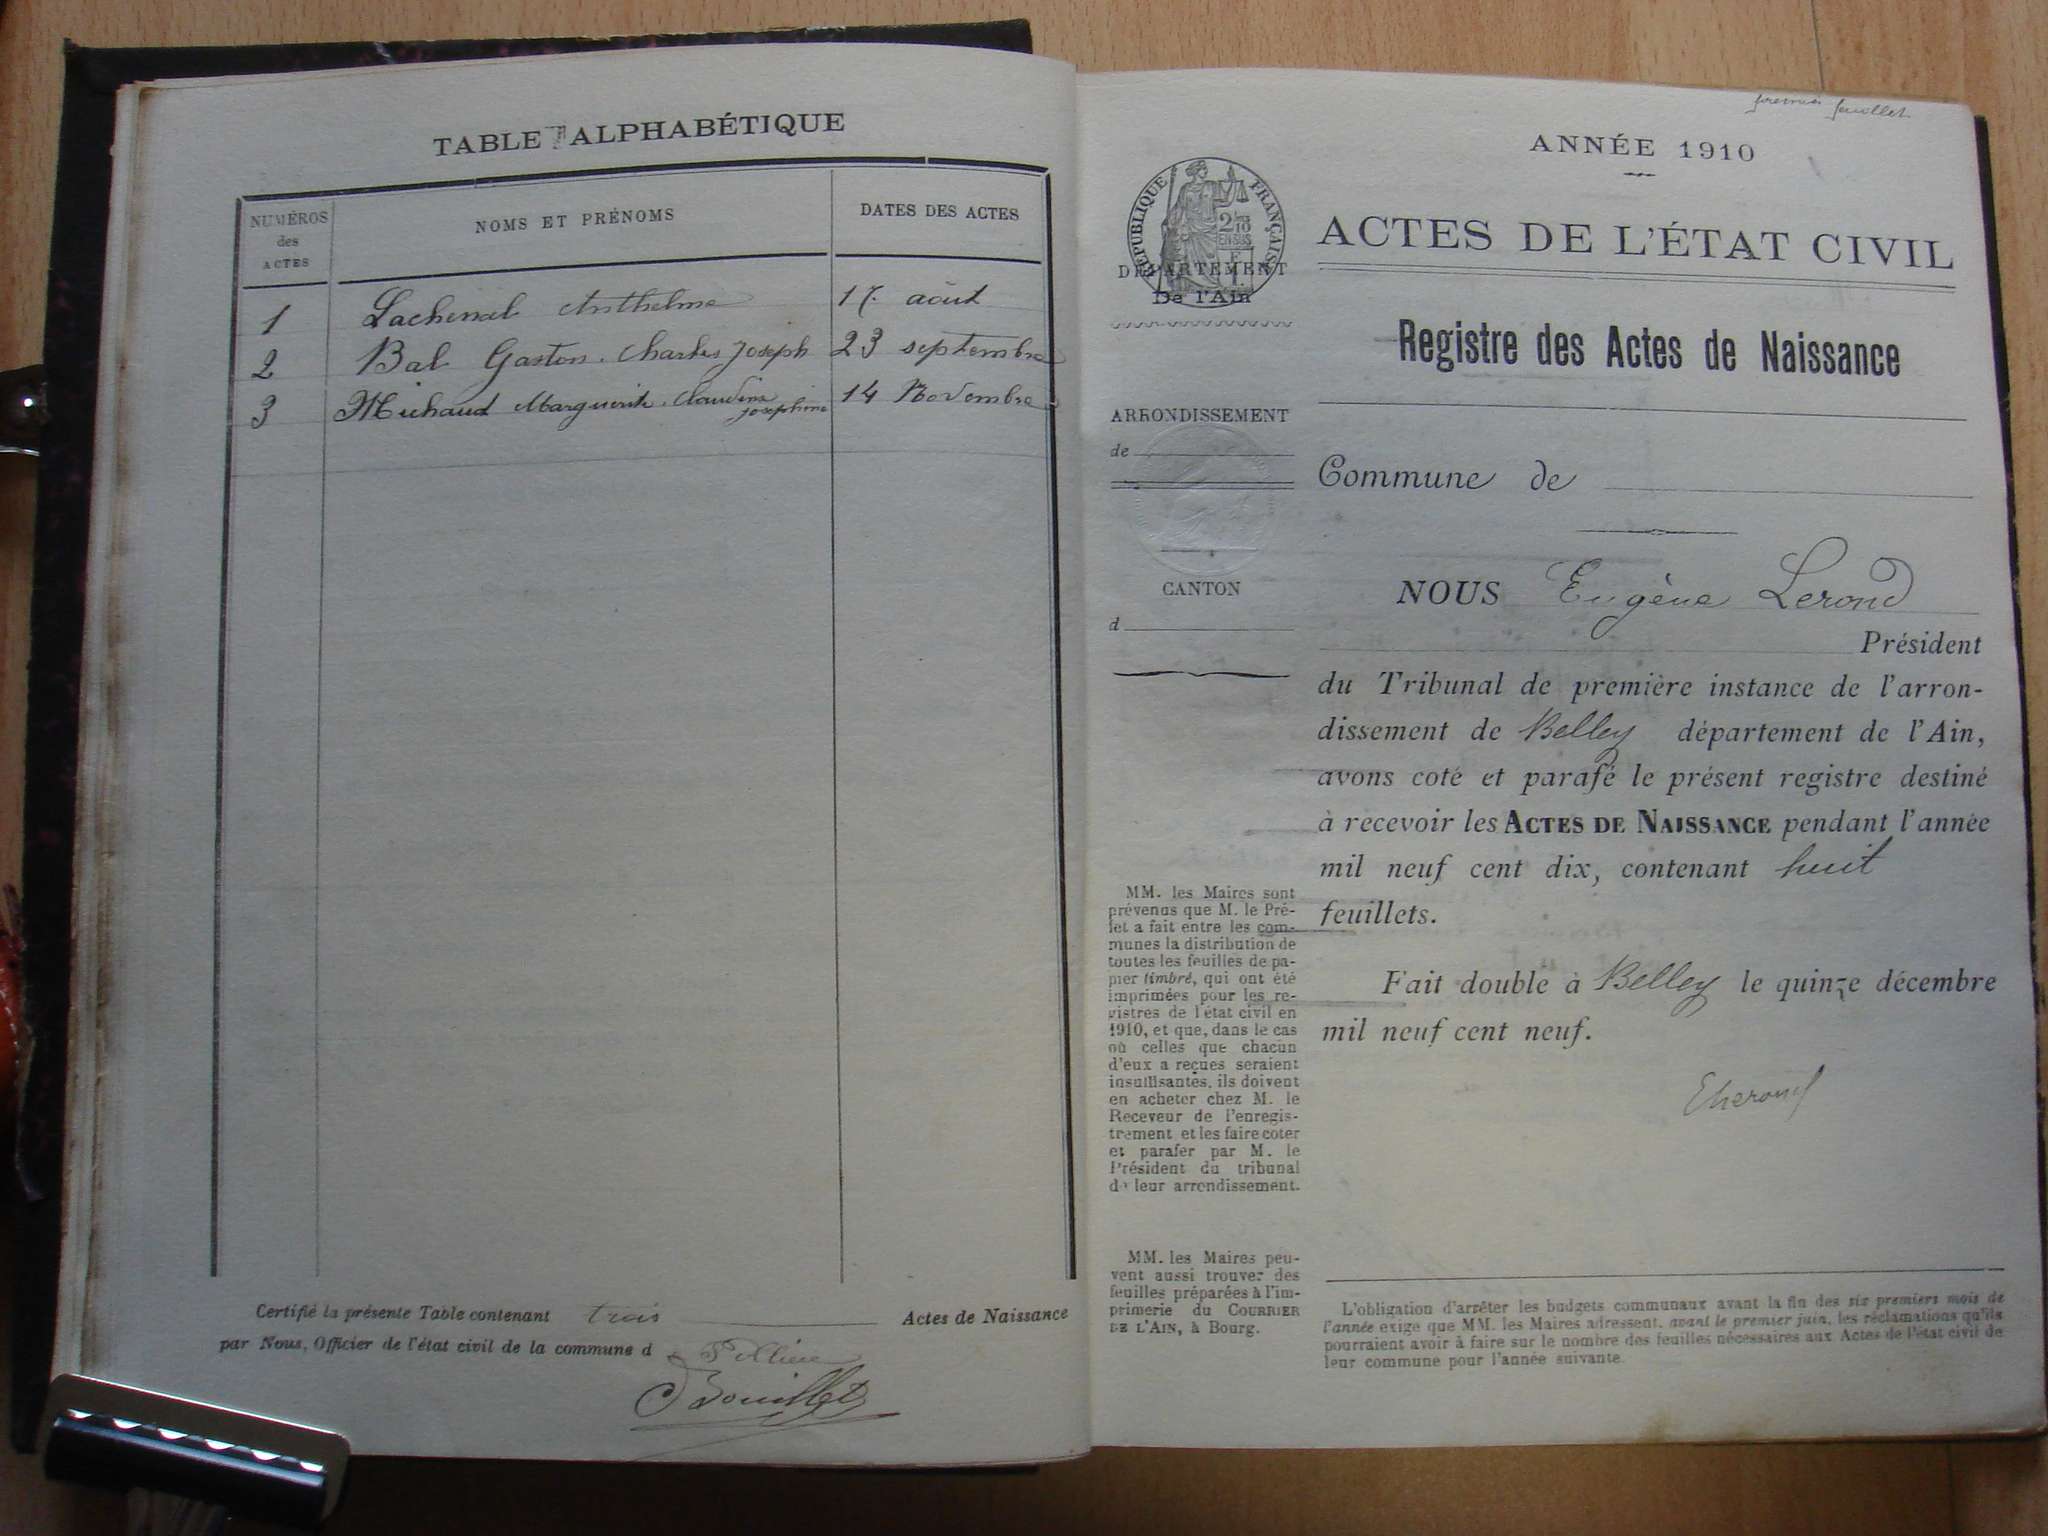 TABLE ALPHABÉTIQUE
NUMÉROS des ACTES
NOMS ET PRÉNOMS
DATES DES ACTES
1 Lachenal Anthelme 17. août
2 Bal Gaston. Charles Joseph 23 septembre
3 Michaud Marguerite. Claudine Joséphine 14 Novembre
Certifié la présente Table contenant trois Actes de Naissance
par Nous, Officier de l'état civil de la commune d
Bouillet
premier feuillet
ANNÉE 1910
RÉPUBLIQUE FRANÇAISE
2/10 EN SUS
DÉPARTEMENT
De l'Ain
ARRONDISSEMENT
de
CANTON
d
MM. les Maires sont
prévenus que M. le Pré-
fet a fait entre les com-
munes la distribution de
toutes les feuilles de pa-
pier timbré, qui ont été
imprimées pour les re-
gistres de l'état civil en
1910, et que, dans le cas
où celles que chacun
d'eux a reçues seraient
insuffisantes, ils doivent
en acheter chez M. le
Receveur de l'enregis-
trement et les faire coter
et parafer par M. le
Président du tribunal
de leur arrondissement.
MM. les Maires peu-
vent aussi trouver des
feuilles préparées à l'im-
primerie du COURRIER
DE L'AIN, à Bourg.
ACTES DE L'ÉTAT CIVIL
Registre des Actes de Naissance
Commune de
NOUS Eugène Lerond
Président
du Tribunal de première instance de l'arron-
dissement de Belley département de l'Ain,
avons coté et parafé le présent registre destiné
à recevoir les ACTES DE NAISSANCE pendant l'année
mil neuf cent dix, contenant huit
feuillets.
Fait double à Belley le quinze décembre
mil neuf cent neuf.
L'obligation d'arrêter les budgets communaux avant la fin des six premiers mois de
l'année exige que MM. les Maires adressent, avant le premier juin, les réclamations qu'ils
pourraient avoir à faire sur le nombre des feuilles nécessaires aux Actes de l'état civil de
leur commune pour l'année suivante.